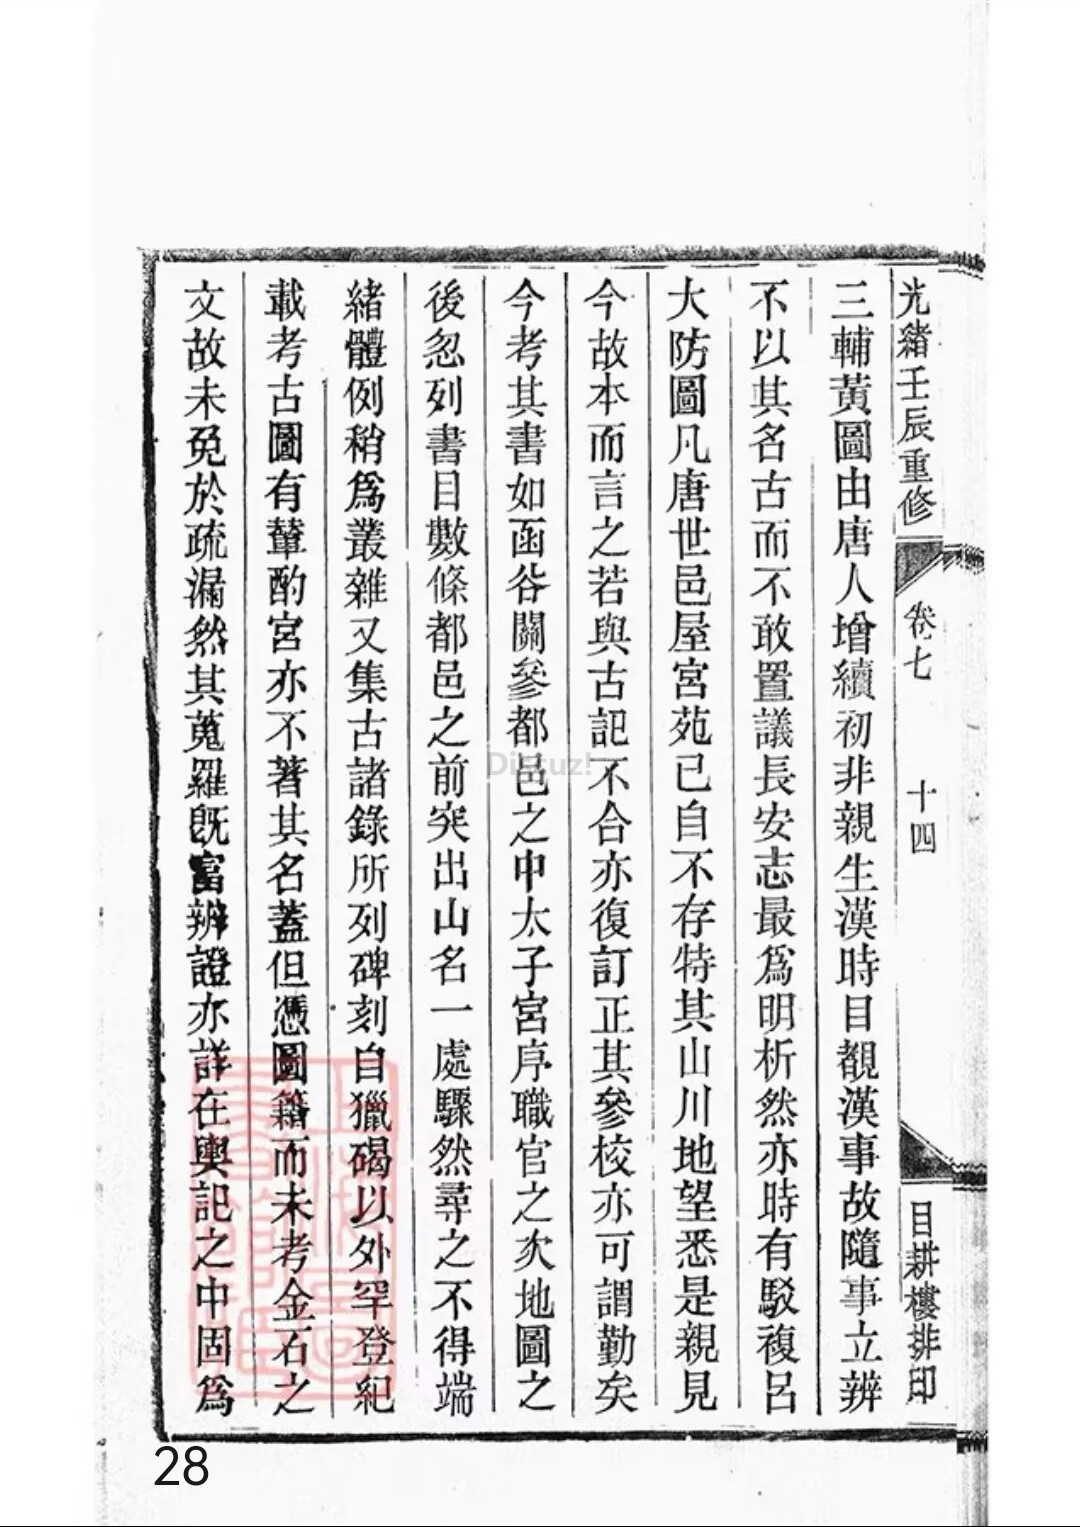 光緒壬辰重修
卷七
十四
目耕樓排印
三輔黃圖由唐人增續初非親生漢時目覩漢事故隨事立辨
不以其名古而不敢置議長安志最爲明析然亦時有駁複呂
大防圖凡唐世邑屋宮苑已自不存特其山川地望悉是親見
今故本而言之若與古記不合亦復訂正其參校亦可謂勤矣
今考其書如函谷關參都邑之中太子宮序職官之次地圖之
後忽列書目數條都邑之前突出山名一處驟然尋之不得端
緒體例稍爲叢雜又集古諸錄所列碑刻自獵碣以外罕登紀
載考古圖有輦酌宮亦不著其名蓋但憑圖籍而未考金石之
文故未免於疏漏然其蒐羅旣富辨證亦詳在輿記之中固爲
Discuz!
28